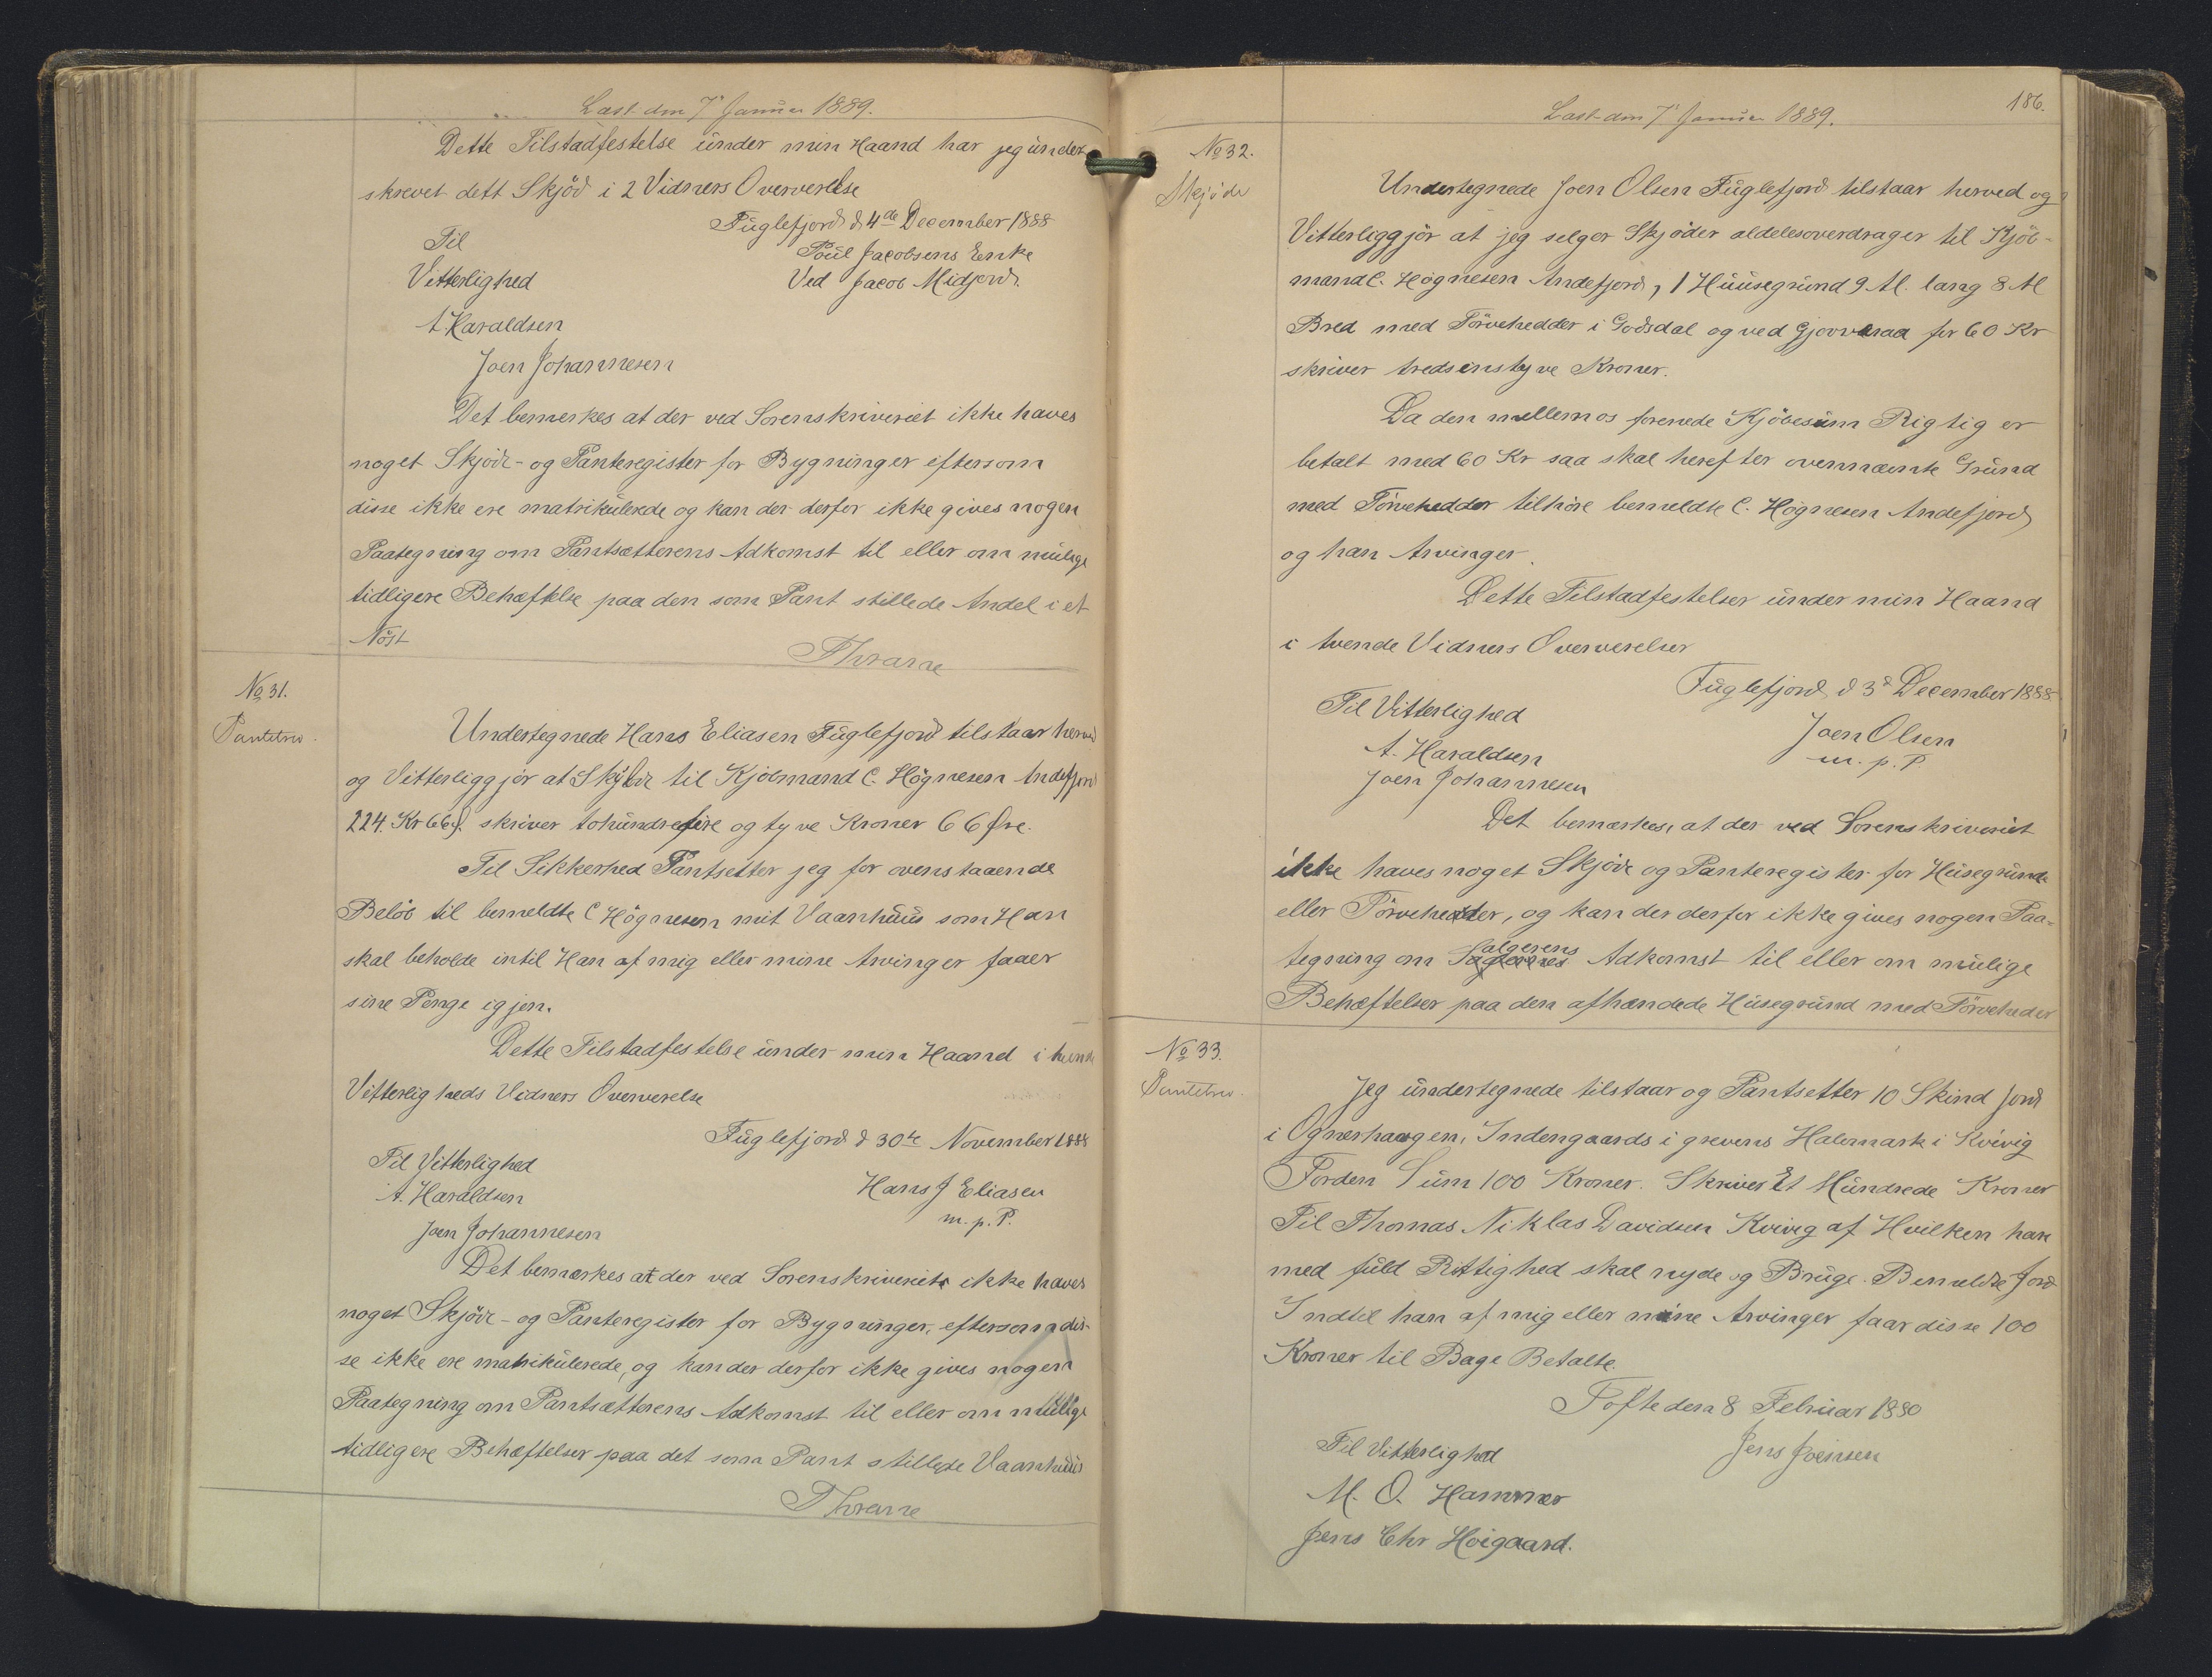 Læst den 7' Januar 1889.
Dette Tilstadfestelse under min Haand har jeg under
skrevet dett Skjöd i 2 Vidners Oververelse
Fuglefjord d 4de December 1888
Til
Poul Jacobsens Enke
Vitterlighed
Ved Jacob Midjord.
A. Haraldsen
Joen Johannesen
Det bemerkes at der ved Sorenskriveriet ikke haves
noget Skjöde- og Panteregister for Bygninger eftersom
disse ikke ere matrikulerede og kan der derfor ikke gives nogen
Paategning om Pantsætterens Adkomst til eller om mulige
tidligere Behæftelse paa den som Pant stillede Andel i et
Nöst
Thrane
No 31.
Pantebrev.
Undertegnede Hans Eliasen Fuglefjord tilstaar herved
og Vitterliggjör at Skylde til Kjöbmand C. Högnesen Andefjord
224. Kr 66 Ø. skriver tohundrefire og tyve Kroner 66 Øre.
Til Sikkerhed Pantsetter jeg for ovenstaaende
Belöb til bemeldte C Högnesen mit Vaanhuus som Han
skal beholde intil Han af mig eller mine Arvinger faaer
sine Penge igjen.
Dette Tilstadfestelse under min Haand i tvende
Vitterligheds Vidners Oververelse
Fuglefjord d 30te November 1888
Til Vitterlighed
A. Haraldsen
Hans J Eliasen
m. p. P.
Joen Johannesen
Det bemærkes at der ved Sorenskriveriets ikke haves
noget Skjöde- og Panteregister for Bygninger, eftersom dis-
se ikke ere matrikulerede, og kan der derfor ikke gives nogen
Paategning om Pantsætterens Adkomst til eller om mulige
tidligere Behæftelser paa det som Pant stillede Vaanhuus
Thrane
186.
Læst den 7' Januar 1889.
No 32.
Skjöde
Undertegnede Joen Olsen Fuglefjord tilstaar herved og
Vitterliggjör at jeg selger Skjöder aldelesoverdrager til Kjöb-
mand C. Högnesen Andefjord, 1 Huusegrund 9 Al. lang 8 Al
Bred med Törvehedder i Godsdal og ved Gjovveraa for 60 Kr
skriver tredsinstyve Kroner.
Da den mellem os forenede Kjöbesum Rigtig er
betalt med 60 Kr saa skal herefter ovennævnte Grund
med Törvehedder tilhöre bemeldte C. Högnesen Andefjord
og han Arvinger.
Dette Tilstadfestelser under min Haand
i tvende Vidners Oververelser
Fuglefjord d 3d December 1888
Til Vitterlighed
Joen Olsen
A. Haraldsen
m. p. P.
Joen Johannesen
Det bemærkes, at der ved Sorenskriveriet
ikke haves noget Skjöde og Panteregister for Husegrunde
eller Törvehedder, og kan der derfor ikke gives nogen Paa-
tegning om Sælgerens Adkomst til eller om mulige
Behæftelser paa den afhændede Husegrund med Törveheder
No 33.
Pantebrev.
Jeg undertegnede tilstaar og Pantsetter 10 Skind Jord
i Ognerhaugen, Indengaards i grevens Halvmark i Kvivig
Forden Sum 100 Kroner. Skriver Et Hundrede Kroner
Til Thomas Niklas Davidsen Kvivig af Hvilken han
med fuld Rettighed skal nyde og Bruge. Bemeldte Jord
Indtil han af mig eller mine Arvinger faar disse 100
Kroner til Bage Betalte.
Tofte den 8 Februar 1880
Til Vitterlighed
Jens Joensen
M. O. Hammer
Jens Chr Hoigaard.